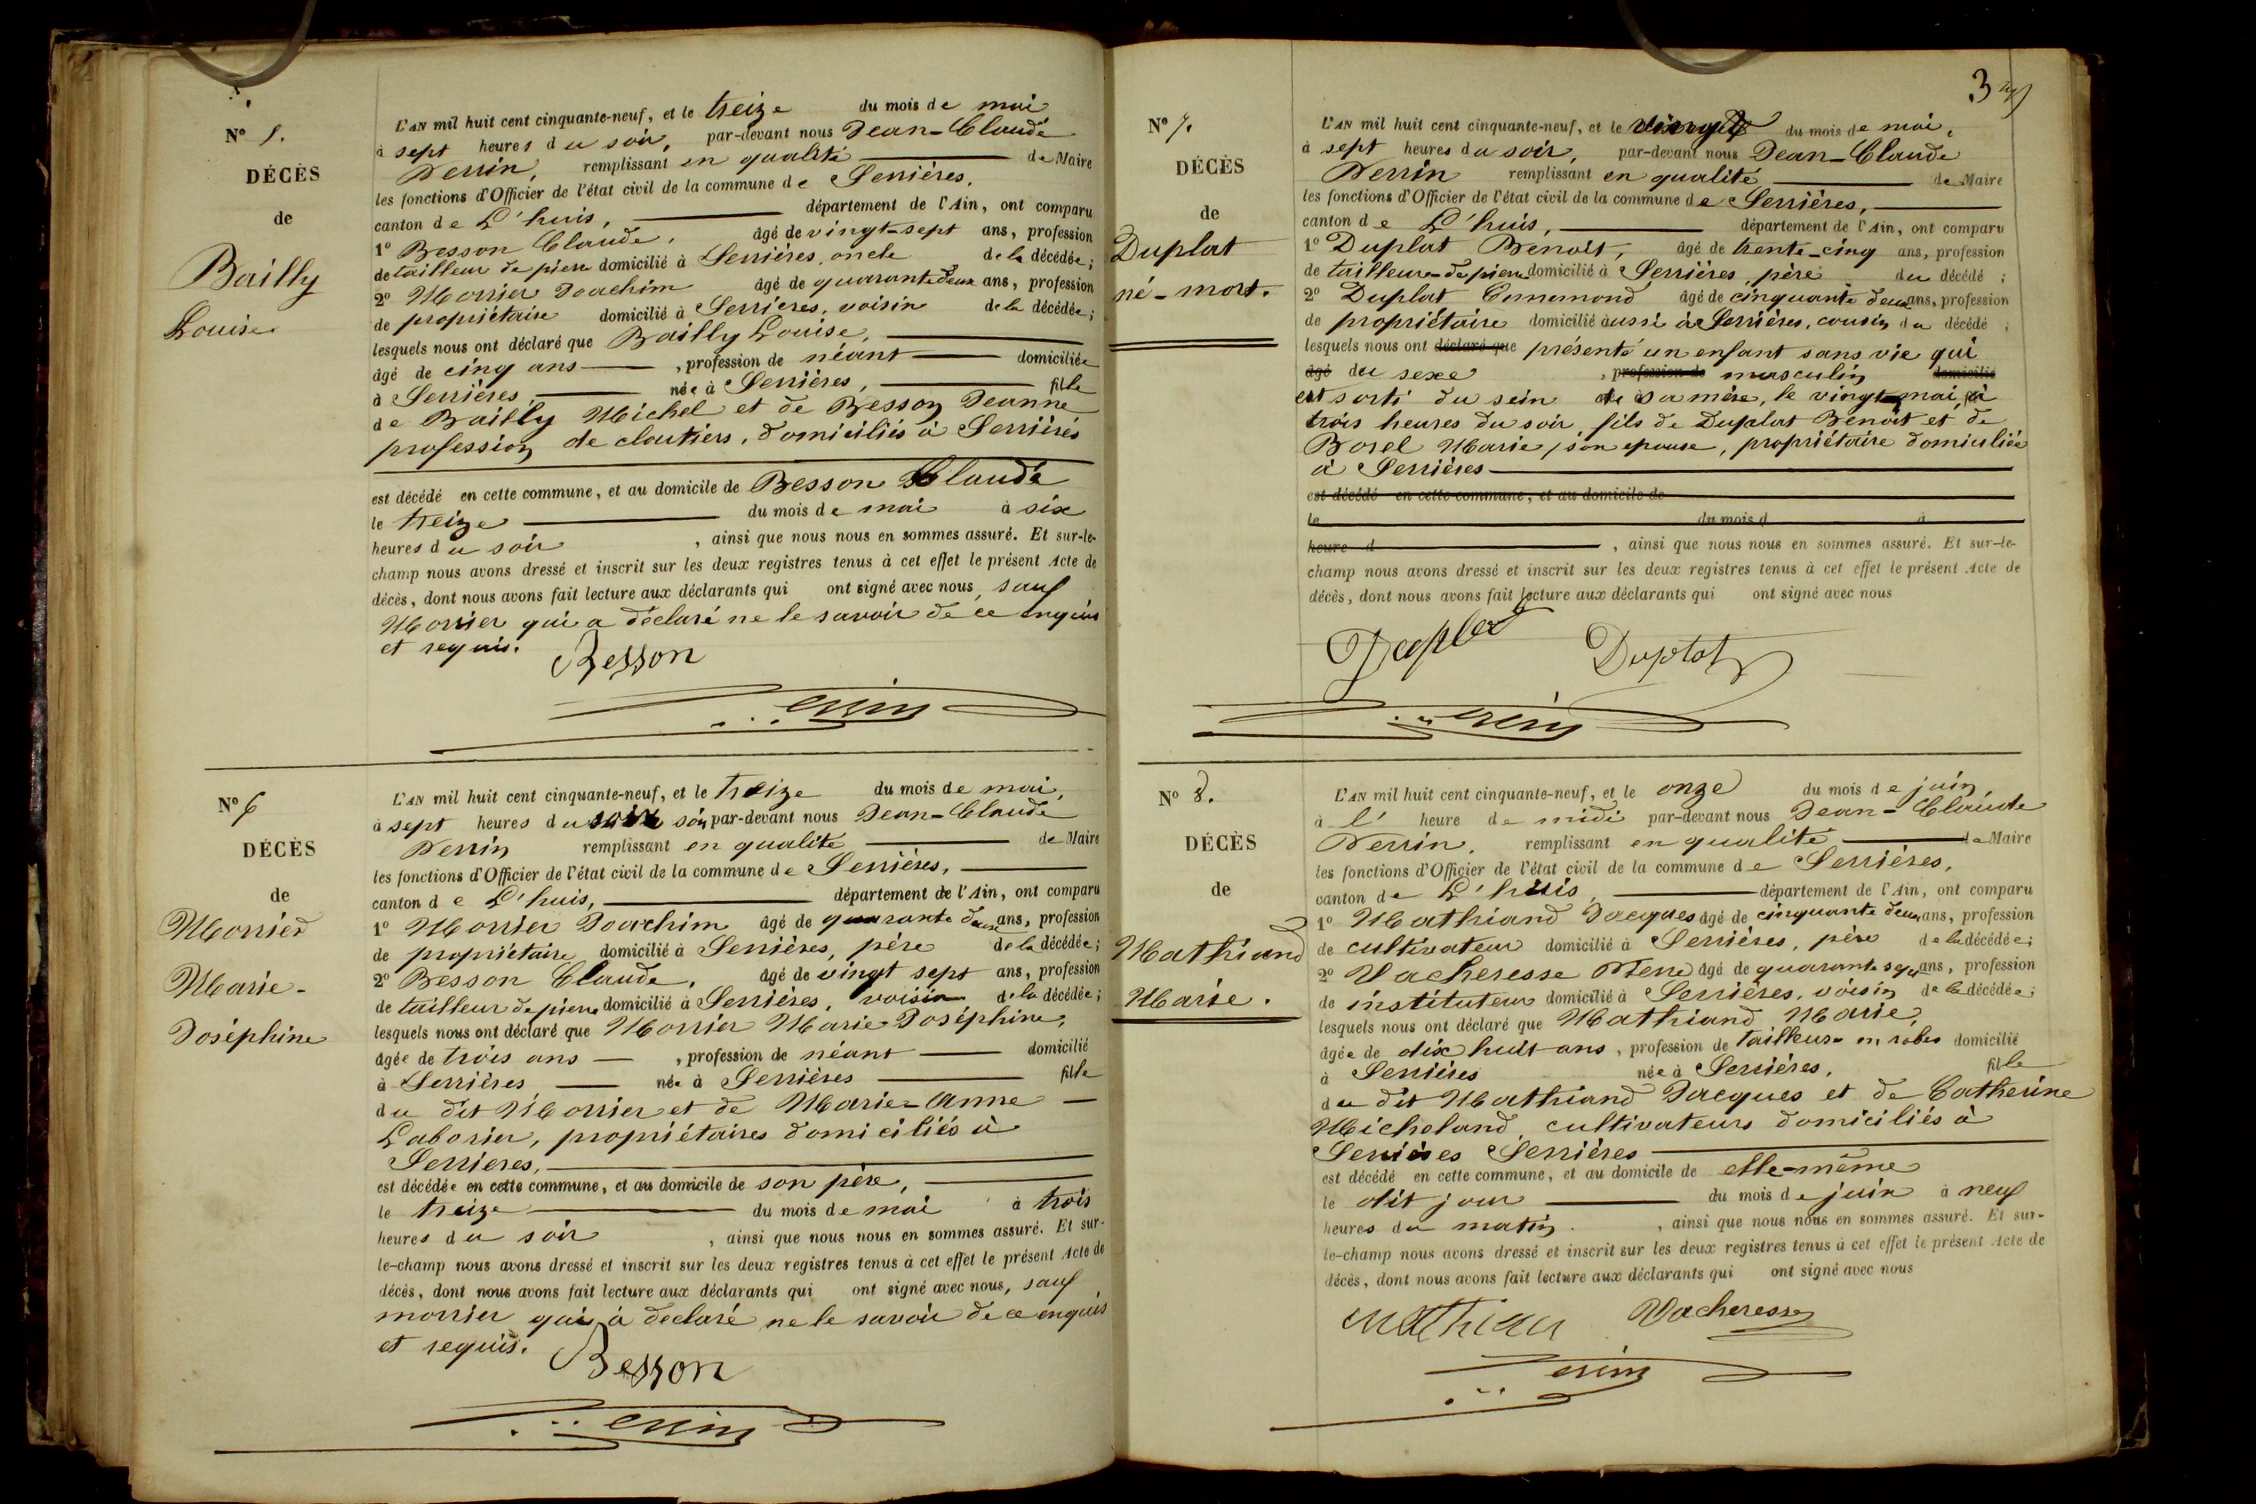 N° 5.
DÉCÈS
de
Bailly
Louise
L'AN mil huit cent cinquante-neuf, et le treize du mois de mai
à sept heures du soir, par-devant nous Jean-Claude
Perrin, remplissant en qualité de Maire
les fonctions d'Officier de l'état civil de la commune de Serrières,
canton de L'huis, département de l'Ain, ont comparu
1° Besson Claude, âgé de vingt-sept ans, profession
de tailleur de pierre domicilié à Serrières, oncle de la décédée;
2° Morrier Joachim âgé de quarante deux ans, profession
de propriétaire domicilié à Serrières, voisin de la décédée;
lesquels nous ont déclaré que Bailly Louise,
âgé de cinq ans, profession de néant domiciliée
à Serrières, née à Serrières, fille
de Bailly Michel et de Besson Jeanne
profession de cloutiers, domiciliés à Serrières
est décédé en cette commune, et au domicile de Besson Claude
le treize du mois de mai à six
heures du soir, ainsi que nous nous en sommes assuré. Et sur-le-
champ nous avons dressé et inscrit sur les deux registres tenus à cet effet le présent Acte de
décès, dont nous avons fait lecture aux déclarants qui ont signé avec nous, sauf
Morrier qui a déclaré ne le savoir de ce enquis
et requis.
Besson
Perrin
N° 6
DÉCÈS
de
Morrier
Marie-
Joséphine
L'AN mil huit cent cinquante-neuf, et le treize du mois de mai,
à sept heures du soir par-devant nous Jean-Claude
Perrin remplissant en qualité de Maire
les fonctions d'Officier de l'état civil de la commune de Serrières,
canton de L'huis, département de l'Ain, ont comparu
1° Morrier Joachim âgé de quarante deux ans, profession
de propriétaire domicilié à Serrières, père de la décédée;
2° Besson Claude, âgé de vingt sept ans, profession
de tailleur de pierre domicilié à Serrières, voisin de la décédée;
lesquels nous ont déclaré que Morrier Marie Joséphine,
âgée de trois ans, profession de néant domicilié
à Serrières née à Serrières fille
du dit Morrier et de Marie-Anne
Laborier, propriétaires domiciliés à
Serrieres,
est décédée en cette commune, et au domicile de son père,
le treize du mois de mai à trois
heures du soir, ainsi que nous nous en sommes assuré. Et sur-
le-champ nous avons dressé et inscrit sur les deux registres tenus à cet effet le présent Acte de
décès, dont nous avons fait lecture aux déclarants qui ont signé avec nous, sauf
morrier qui à declaré ne le savoir de ce enquis
et requis.
Besson
Perrin
3
N° 7.
DÉCÈS
de
Duplat
né-mort.
L'AN mil huit cent cinquante-neuf, et le vingt du mois de mai,
à sept heures du soir, par-devant nous Jean-Claude
Perrin remplissant en qualité de Maire
les fonctions d'Officier de l'état civil de la commune de Serrières,
canton de L'huis, département de l'Ain, ont comparu
1° Duplat Benoit, âgé de trente-cinq ans, profession
de tailleur-de-pierre domicilié à Serrières, père du décédé;
2° Duplat âgé de cinquante deux ans, profession
de propriétaire domicilié aussi à Serrières, cousin du décédé;
lesquels nous ont déclaré que présenté un enfant sans vie qui
âgé du sexe, profession de masculin domicilié
est sorti du sein de sa mère, le vingt mai, à
trois heures du soir, fils de Duplat Benoit et de
Borel Marie, son epouse, propriétaire domiciliée
à Serrières
est décédé en cette commune, et au domicile de
le du mois d à
heure d, ainsi que nous nous en sommes assuré. Et sur-le-
champ nous avons dressé et inscrit sur les deux registres tenus à cet effet le présent Acte de
décès, dont nous avons fait lecture aux déclarants qui ont signé avec nous
Duplat Duplat
Perrin
N° 8.
DÉCÈS
de
Mathiand
Marie.
L'AN mil huit cent cinquante-neuf, et le onze du mois de juin,
à l' heure de midi par-devant nous Jean-Claude
Perrin, remplissant en qualité de Maire
les fonctions d'Officier de l'état civil de la commune de Serrières,
canton de L'huis, département de l'Ain, ont comparu
1° Mathiand Jacques âgé de cinquante deux ans, profession
de cultivateur domicilié à Serrières, père de la décédée;
2° Vacheresse Pierre âgé de quarante sept ans, profession
de instituteur domicilié à Serrières, voisin de la décédée;
lesquels nous ont déclaré que Mathiand Marie,
âgée de dix huit ans, profession de tailleuse en robes domicilié
à Serrières née à Serrières, fille
du dit Mathiand Jacques et de Catherine
Micheland, cultivateurs domiciliés à
Serrières Serrières
est décédé en cette commune, et au domicile de elle-même
le dit jour du mois de juin à neuf
heures du matin, ainsi que nous nous en sommes assuré. Et sur-
le-champ nous avons dressé et inscrit sur les deux registres tenus à cet effet le présent Acte de
décès, dont nous avons fait lecture aux déclarants qui ont signé avec nous
Mathian Vacheresse
Perrin